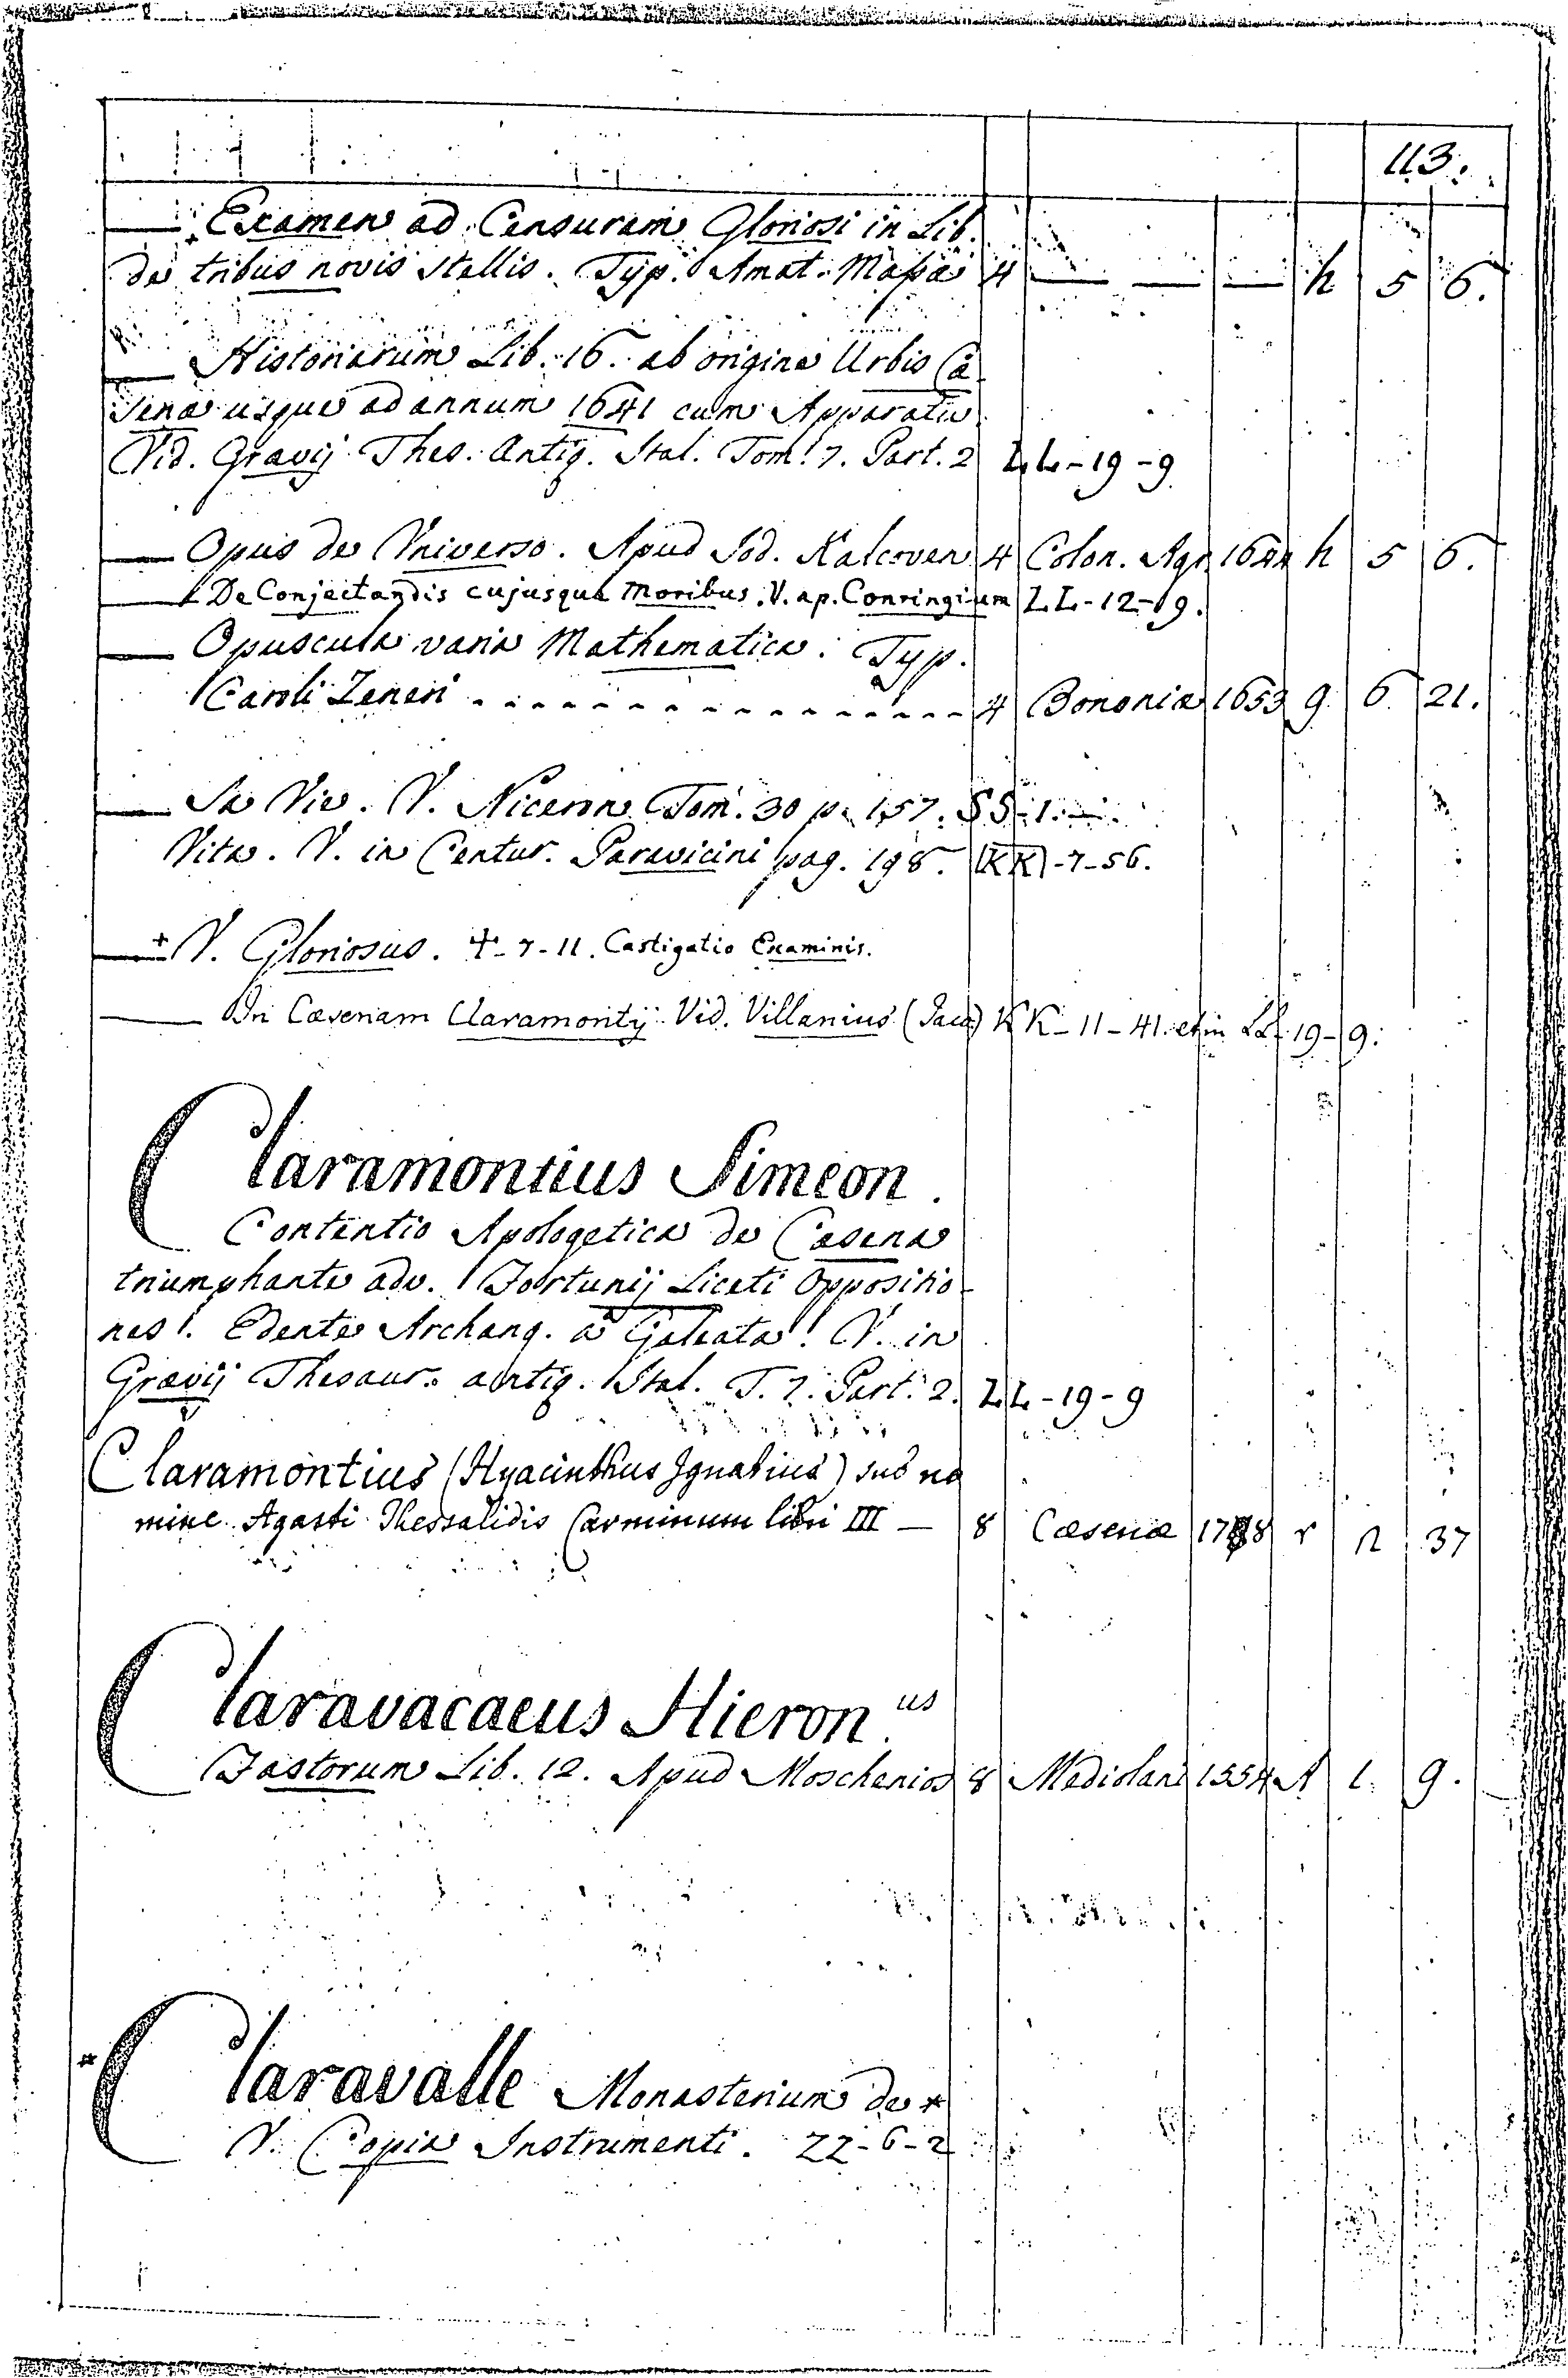 113.
— Examen ad Censuram Gloriosi in Lib.
de tribus novis Stellis. Typ. Amat. Massæ 4 — — — h 5 6.
— Historiarum Lib. 16. ab origine Urbis Cæ
senæ usque ad annum 1641 cum Apparatu
Vid. Grævij Thes. Antiq. Ital. Tom. 7. Part. 2 LL-19-9
— Opus de Universo. Apud Jod. Kalcoven 4 Colon. Agr. 1644 h 5 6.
— De Conjectandis cujusque moribus. V. ap. Conringium LL-12-19.
— Opuscula varia Mathematica. Typ.
Caroli Zeneri 4 Bononiæ 1653 g 6 21.
— Sa Vie. V. Niceron Tom. 30 p. 157. SS-1.—.
Vita. V. in Centur. Paravicini pag. 198. KK-7-56.
— + V. Gloriosus. +-7-11. Castigatio Examinis.
— In Cæsenam Claramontij Vid. Villanius (Jaco) KK-11-41. et in LL-19-9.
Claramontius Simeon.
Contentio Apologetica de Cæsena
triumphante adv. Fortunij Liceti Oppositio-
nes. Edente Archang. a Galeata. V. in
Grævij Thesaur. antiq. Ital. T. 7. Part. 2. LL-19-9
Claramontius (Hyacinthus Ignatius) sub no
mine Agasti Thessalidis Carminum libri III — 8 Cæsenæ 1788 r n 37
Claravacaeus Hieron.us
Fastorum Lib. 12. Apud Moschenios 8 Mediolani 1554 A 1. 9.
* Claravalle Monasterium de *
V. Copia Instrumenti. 22-6-2